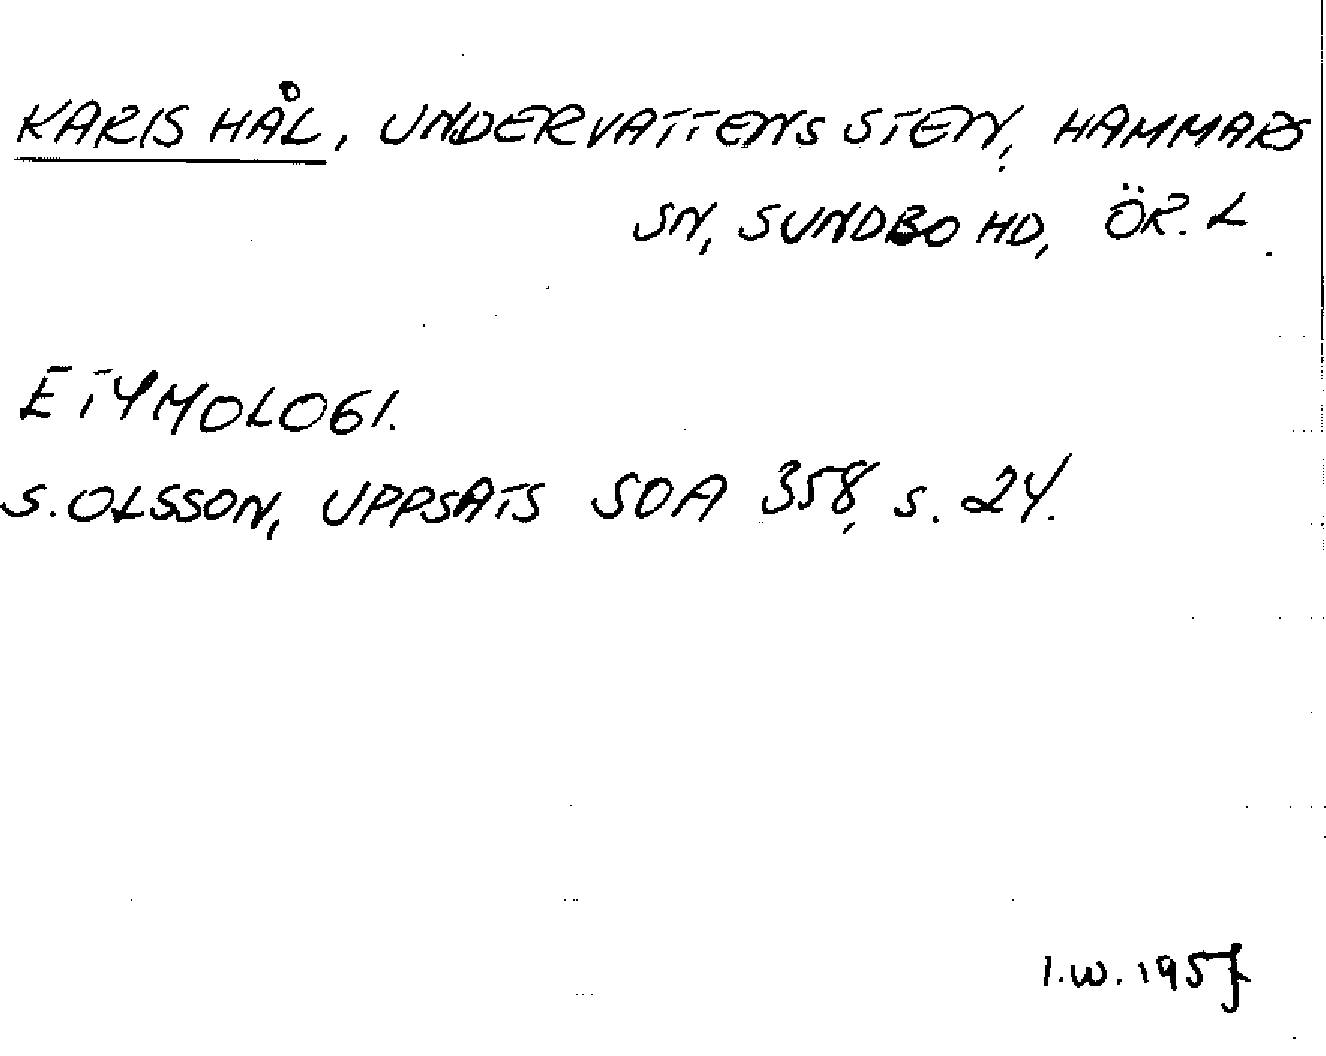 KARIS HÅL, UNDERVATTENS STEN, HAMMARS
SN, SUNDBO HD, ÖR. L.
ETYMOLOGI.
S. OLSSON, UPPSATS SOA 358, s. 24.
I.W. 1957